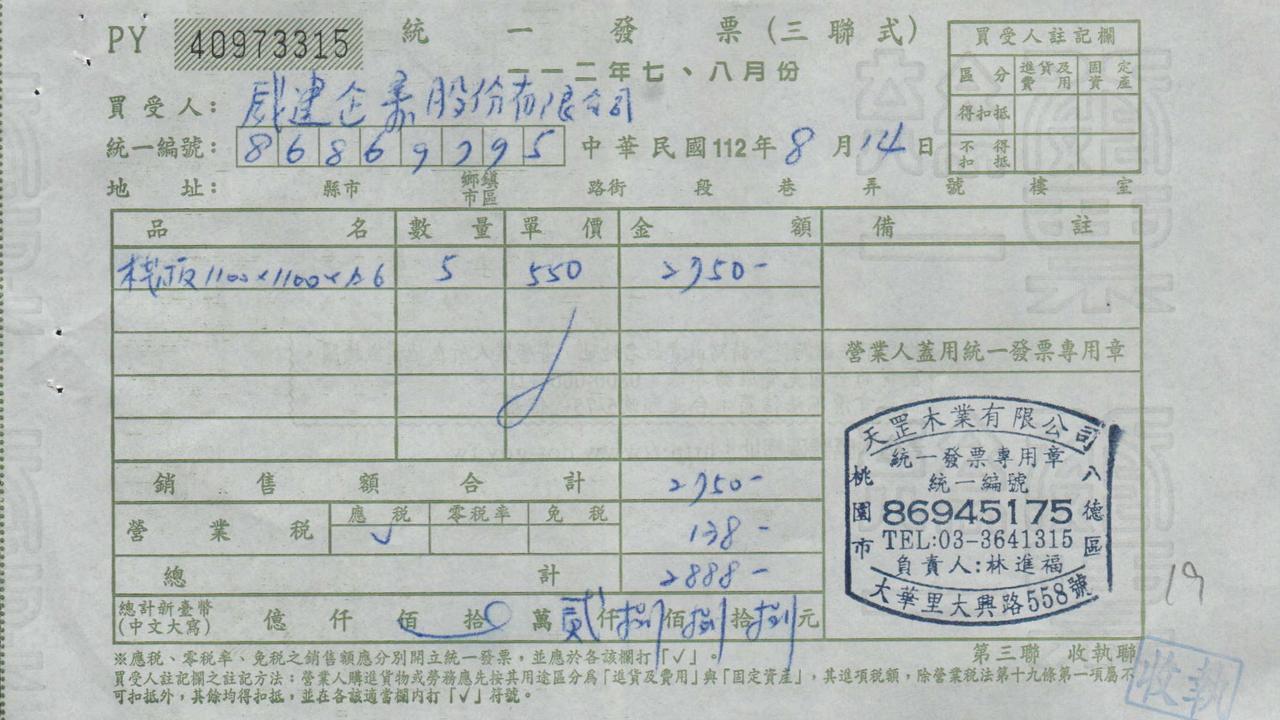 PY 40973315 統一發票(三聯式)
一一二年七、八月份
買受人註記欄
區分 進貨及費用 固定資產
得扣抵
不得扣抵
買受人: 威建企業股份有限公司
統一編號: 86869795 中華民國112年8月14日
地址: 縣市 鄉鎮市區 路街 段 巷 弄 號 樓 室
品名 數量 單價 金額 備註
栈板1100×1100× 5 550 2750-
營業人蓋用統一發票專用章
銷售額合計 2750-
營業稅 應稅 零稅率 免稅
✓ 138-
總計 2888-
總計新臺幣(中文大寫) 億 仟 佰 拾 萬 貳仟捌佰捌拾捌元
天罡木業有限公司
統一發票專用章
統一編號
86945175
TEL:03-3641315
負責人:林進福
桃園市八德區
大華里大興路558號
19
第三聯 收執聯
收執
※應稅、零稅率、免稅之銷售額應分別開立統一發票,並應於各該欄打「✓」。
買受人註記欄之註記方法:營業人購進貨物或勞務應先按其用途區分為「進貨及費用」與「固定資產」,其進項稅額,除營業稅法第十九條第一項屬不
可扣抵外,其餘均得扣抵,並在各該適當欄內打「✓」符號。